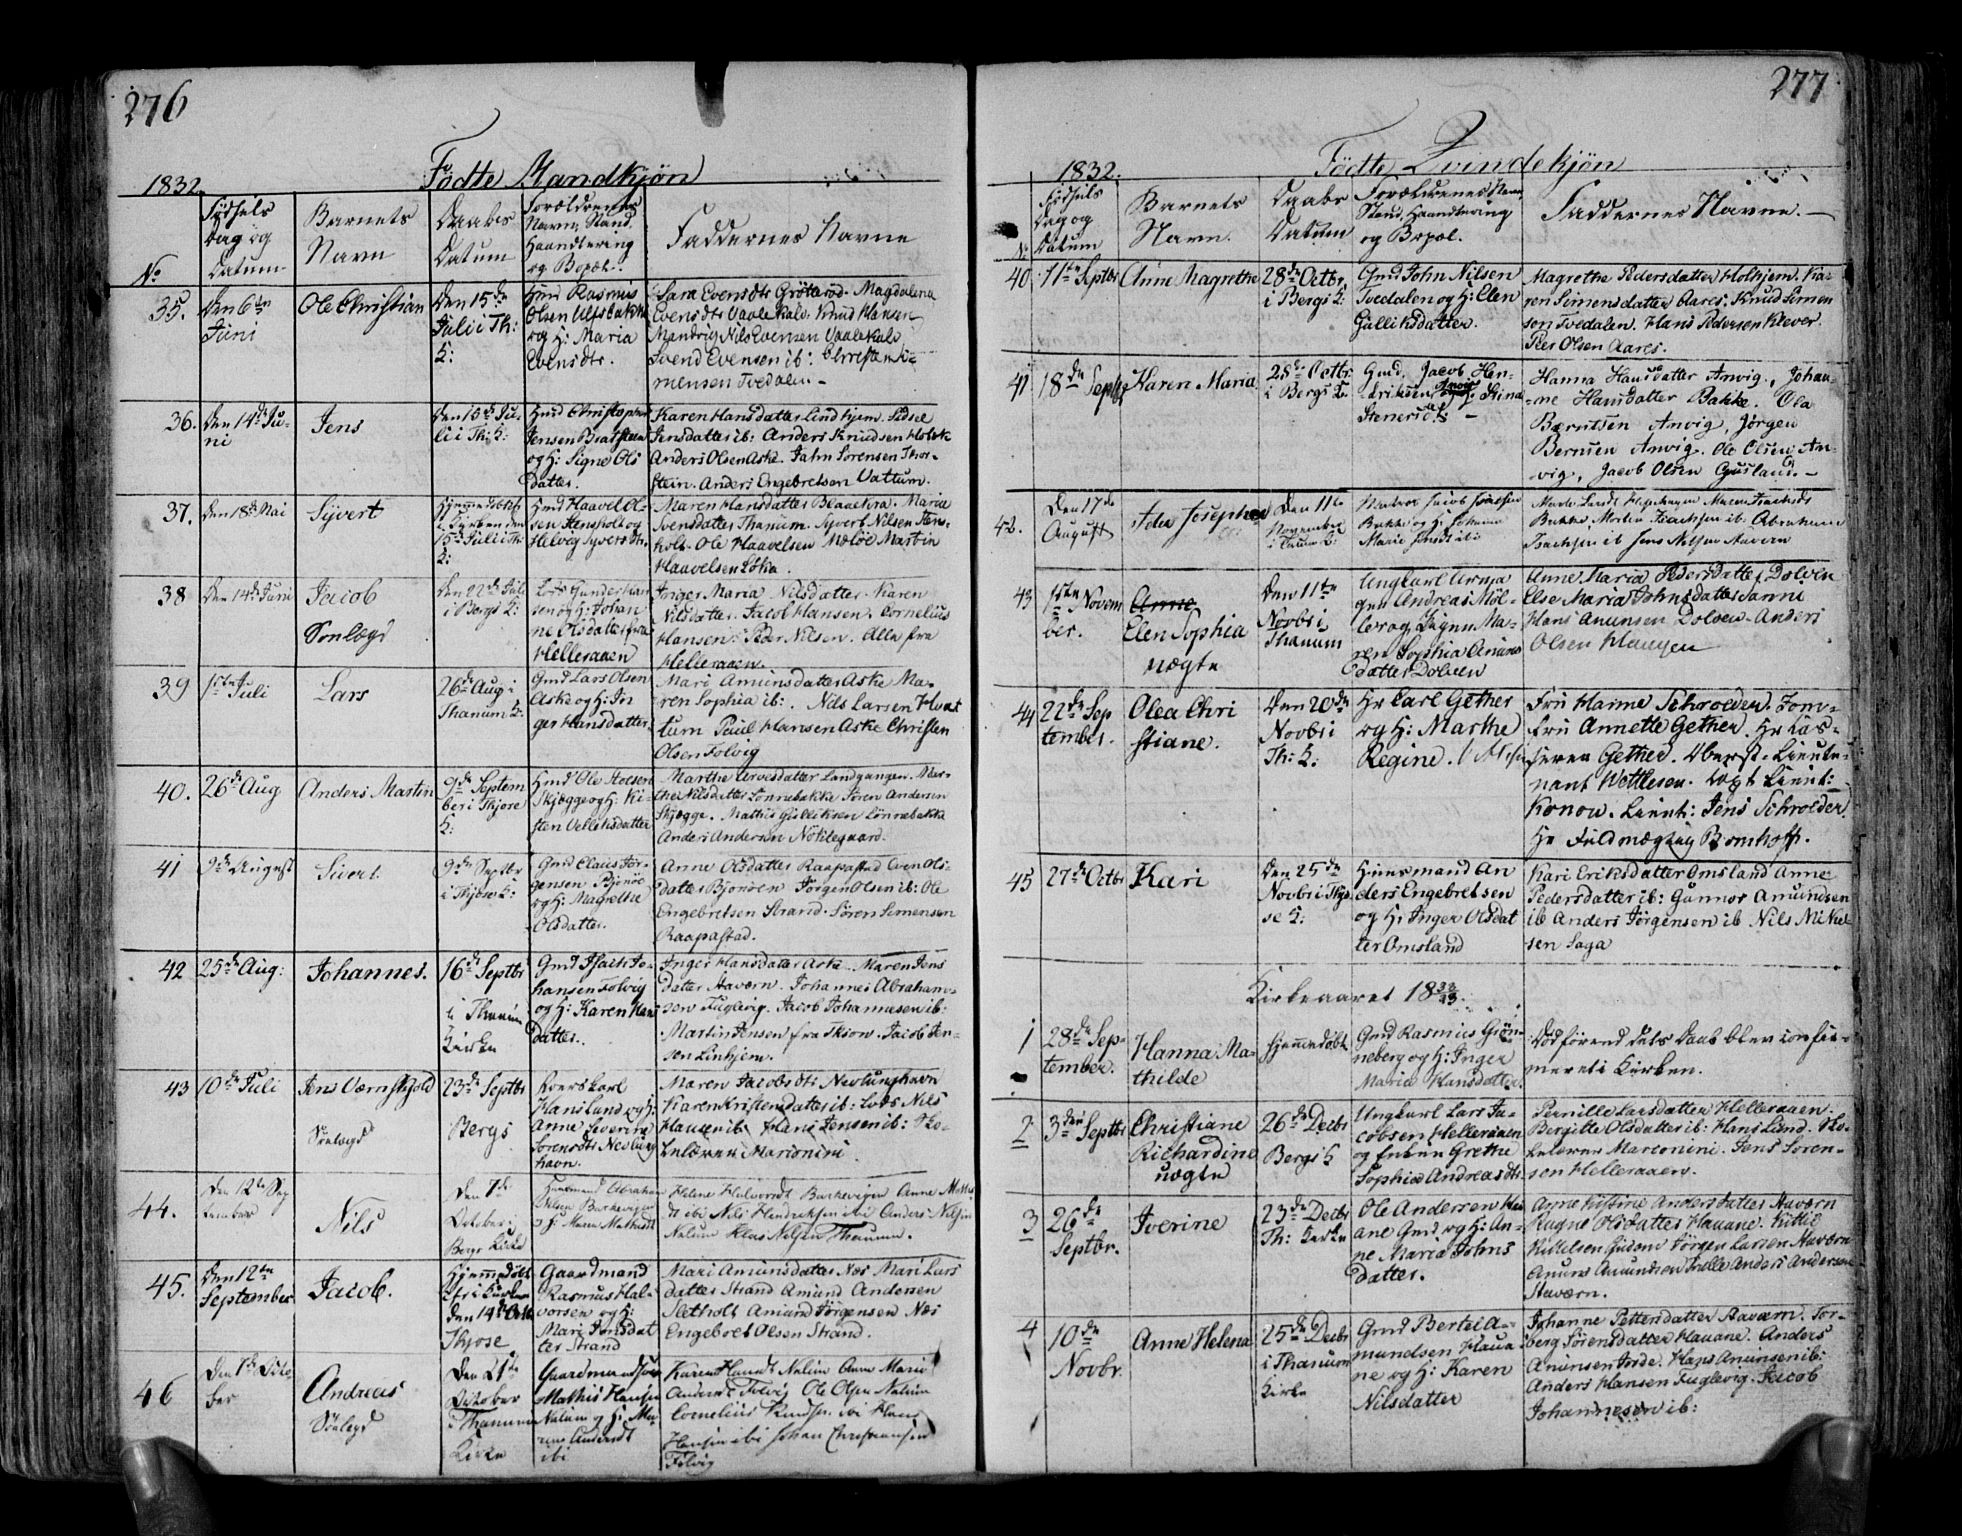 276
Födte Mandkjön
1832.
No
Födsels
Dag og
Datum
Barnets
Navn
Daabs
Datum
Forældrenes
Navne, Stand,
Haandtering
og Bopæl.
Faddernes Navne
35.
Den 6te
Juni
Ole Christian
Den 15de
Juli i Th:
K:
Hmd Rasmus
Olsen
og H: Maria
Evensdtr.
Sara Evensdtr Grötteröd. Magdalena
Evensdtr Vaalekals. Knud Hansen
Mandrig Nils Evensen Vaalekals
Svend Evensen ib: Christen Si-
mensen Tvedalen -
36.
Den 14de Ju-
ni
Jens
Den 15de Ju-
li i Th: K:
Hmd Christopher
Jensen Bratsteen
og H: Signe Ols
datter.
Karen Hansdatter Lindhjem. Sidsel
Jensdatter ib: Anders Knudsen Holek
Anders Olsen Aske. Jahn Sörensen Thor-
stein. Anders Engebretsen Vattum.
37.
Den 18de Mai
Syvert
Hjemmedöbt
i Kirken den
15de Juli i Th:
K:
Hmd Haavel Ol-
sen Stensholt og
Helvig Syvertsdtr.
Maren Hansdatter Blaaekra. Maria
Svensdatter Thanum. Syvert Nilsen Stens-
holt. Ole Haavelsen Melöe Martin
Haavelsen Loka.
38
Den 14de Juni
Jacob
Sönlogd
Den 22de Juli
i Bergs K:
Lods Gunder Han
sen og H: Johan
ne Olsdatter fra
Helleraaen
Inger Maria Nilsdatter. Karen
Nilsdatter. Jacob Hansen. Cornelius
Hansen. Peder Nilsen. Alle fra
Helleraaen.
39
1ste Juli
Lars
26de Aug i
Thanum K:
Gmd Lars Olsen
Aske og H: In
ger Hansdatter.
Mari Amunsdatter Aske Ma-
ren Sophia ib:. Nils Larsen Hvat
tum Paul Hansen Aske Christen
Olsen Folvig
40.
26de Aug
Anders Martin
9de Septem
ber i Thjose
K:
Hmd Ole Stensen
Skjægge og H. Ki-
sten Vellecksdatter
Marthe Arvesdatter Landgangen. Mar-
the Nilsdatter Lönnebakke Sören Andersen
Skjægge. Mathis Gulliksen Lönnebakke
Anders Andersen Nöklegaard.
41
9de August
Sivert
9de Septbr
i Thjose K:
Gmd Claus Jör-
gensen Bjönöe
og H: Magrethe
Olsdatter.
Anne Olsdatter Raapastad Even Ols
datter Bjonöen Jörgen Olsen ib: Ole
Engebretsen Strand. Sören Simensen
Raapastad.
42
25de Aug:
Johannes.
16de Septbr
i Thanum
Kirke
Gmd Isach Jo-
hansen Folvig
og H: Karen Han
datter.
Inger Hansdatter Aske. Maren Jens
datter Haavern. Johannes Abraham-
sen Fuglevig. Jacob Johannesen ib:
Martin Jensen fra Skiow. Jacob Jen-
sen Linhjem.
43
10de Juli
Jens Værnskjold
Sönlogd
23de Septbr
Bergs
Hans Lund og H:
Anne Severine
Sörensdtr Nevlung
havn.
Maren Jacobsdtr Nevlunghavn
Karen Kristensdatter ib: Lods Nils
Hansen ib: Hans Jensen ib: Sko-
lelærer Marionini.
44.
Den 12te Sep
tember
Nils
Den 7de
October i
Bergs Kirke
Huusmand Abraham
Nilsen Barkevigen
og H. Maren Mathisdt
Helene Halvorsdt Barkevigen Anne Mathi
dt ibi Nils Hendriksen ibi Anders Nilsen
Nalum Klas Nilsen Thanum.
45.
Den 12te
September
Jacob.
Hjemmedöbt
Chr i Kirken
den 14de Octb
Thjose
Gaardmand
Rasmus Hal-
vorsen og H:
Mari Jonsdat
ter Strand
Mari Amunsdatter Næs Mari Lars
datter Strand Amund Andersen
Sletholt Amund Jörgensen Næs
Engebret Olsen Strand.
46
Den 1de Octo
ber
Andreas
Sönlogd
Den 21de
October
i Thanum
Kirke
Gaardmandsön
Mathis Hansen
Nalum og H. Ma
ren Andersdt
ibi
Karen Hansdt Nalum Anne Marie
Andersdt Folvig Ole Olsen Nalum
Cornelius Knudsen ibi Hans
Hansen ibi Johan Christiansen
Folvig
277
Födte Qvindekjön
1832.
No
Födsels
Dag og
Datum
Barnets
Navn.
Daabs
Datum
Forældrenes Navn,
Stand, Haandtering
og Bopæl.
Faddernes Navne. -
40.
11te Septbr
Anne Magrethe
28de Octbr
i Bergs K:
Gmd John Nilsen
Tvedalen og H: Elen
Gulliksdatter.
Magrethe Pedersdatter Holhjem. Ka-
ren Simensdatter Aares. Knud Simen
sen Tvedalen. Hans Pedersen Klever.
Peer Olsen Aares.
41.
18de Septbr
Karen Maria
28de Octbr
i Bergs K.
Gmd. Jacob Hen-
driksen Anvig Stina
Stenersdt. -
Hanna Hansdatter Anvig., Johan-
ne Hansdatter Bakke. Ola
Berntsen Anvig, Jörgen
Bernsen Anvig. Ole Olsen An-
vig, Jacob Olsen Gusland. -
42.
Den 17de
August
Ida Josephe
Den 11te
November
Matros Jacob Josephsen
Bakke og H. Johanne
Marie
Bakke Morten Isachsen ib. Abraham
Isachsen ib Jens Nilsen Aavern
43
1ste Novem
ber.
Anne
Elen Sophia
uægte
Den 11te
Novbr i
Thanum
Ungkarl Arma
gun Andreas Möl-
ler og Pigen Ma-
ren Sophia Amuns
datter Dolven
Anne Maria Pedersdatter Dolven
Else Maria Johnsdatter Sanne
Hans Amunsen Dolven. Anders
Olsen Haugen
44
22de Sep
tember.
Olea Chri
stiane.
Den 20de
Novbr i
Th: K:
Hr Carl Gether
og H: Marthe
Regine.
Fru Hanne Schroeder. Jom-
fru Annette Gether. Hr Kas-
serer Gether. Oberst-Lieute-
nant Wettlesen. Capt Lieut:
Konow. Lieut: Jens Schroeder.
Hr Fuldmægtig Bomhoff.
45
27de Octbr
Kari
Den 25de
Novbr i Thjo
se K:
Huusmand An
ders Engebretsen
og H: Inger Olsdat
ter Omsland
Kari Eriksdatter Omsland Anne
Pedersdatter ib: Gunnor Amundsen
ib Anders Jörgensen ib Nils Mikel
sen Saga
Kirkeaaret 18 32/33.
1
28de Sep-
tember.
Hanna Ma-
thilde
Hjemmedöbt
Gmd Rasmus Grön-
neberg og H: Inger
Maria Hansdatter.
Död förend dets Daab blev confir-
meret i Kirken.
2
3die Septbr
Christiane
Richardine
uægte
26de Decbr
Bergs K
Ungkarl Lars Ja-
cobsen Helleraaen
og Enken Grethe
Sophia Andreasdtr
Pernille Larsdatter Helleraaen.
Bergitte Olsdatter ib: Hans Lund. Sko-
lelærer Marionini. Jens Sören-
sen Helleraaen.
3
26de
Septbr.
Iverine
23de Decbr
Th: Kirke
Ole Andersen Hau
ane Gmd og H: An-
ne Maria Johns
datter.
Anne Kistine Andersdatter Haværn
Ragne Olsdatter Hauane. Kittil
Kittelsen Gusom Jörgen Larsen Haværn
Amund Amundsen Trelle Anders Andersen
Haværn.
4
10de
Novbr.
Anne Helena
25de Decbr
i Thanum
Kirke
Gmd Bertel A-
mundsen Haua
ne og H: Karen
Nilsdatter
Johanne Pettersdatter Haværn. Tor-
berg Sörensdatter Hauane. Anders
Amunsen Jorde. Hans Amunsen ib:
Anders Hansen Fuglevig. Jacob
Johannesen ib: